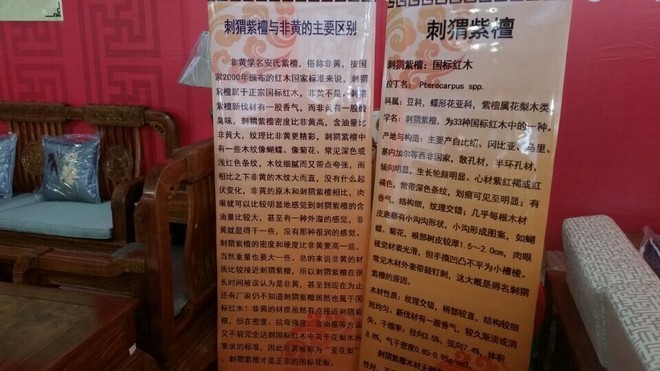 刺猬紫檀与非黄的主要区别
非黄学名安氏紫檀，俗称非黄，按国
家2000年颁布的红木国家标准来说，刺猬
紫檀属于正宗国标红木，非黄不是。刺猬
紫檀新伐材有一股香气，而非黄有一股酸
臭味，刺猬紫檀密度比非黄高，含油量比
非黄大、纹理比非黄更精彩，刺猬紫檀中
有一些木纹像蝴蝶、像菊花、常见深色或
浅红色条纹，木纹细腻而又带点夸张，而
相比之下非黄的木纹大而直，没有什么起
伏变化，非黄的原木和刺猬紫檀相比，肉
眼就可以比较明显地感觉到刺猬紫檀的含
油量比较大，甚至有一种外溢的感觉，非
黄就显得干一些，没有那种很润的感觉。
刺猬紫檀的密度和硬度比非黄要高一些，
当然重量也要大一些。总的来说非黄的材
质比较接近刺猬紫檀，所以刺猬紫檀在很
长时间被误认为是非黄，甚至到现在为止
还有厂家仍不知道刺猬紫檀居然也属于国
标红木！非黄的材质虽然有点接近刺猬紫
檀，但在密度、抗弯强度、含油量等方面
又不能完全达到国标红木中关于花梨木所
要求的标准，因此非黄被称为“亚花梨”
，刺猬紫檀才是正宗的国标花梨。
刺猬紫檀
刺猬紫檀：国标红木
拉丁名：Pterocarpus spp.
科属：豆科，蝶形花亚科，紫檀属花梨木类
学名：刺猬紫檀，为33种国标红木中的一种。
产地与构造：主要产自比绍，冈比亚、马里、
塞内加尔等西非国家，散孔材，半环孔材，
倾向明显，生长轮颇明显。心材紫红褐或红
褐色，常带深色条纹，划痕可见至明显；有
香气。结构细，纹理交错；几乎每根木材
皮康都有小沟沟形状，小沟形成图案，如蝴
蝶、菊花，根部树皮较厚1.5～2.0cm，肉眼
视觉材表光滑，但手摸凹凸不平为小槽棱。
常见木材外表带鼓钉刺，这大概是得名刺猬
紫檀的原因。
木材性质：纹理交错，梢部较直，结构较细
而均匀，新伐材有一股香气，较久渐淡或消
失。干缩率：径向3.5%、弦向7.4%、体积
8.8%，气干密度0.85-0.95g/cm
刺猬紫檀木材